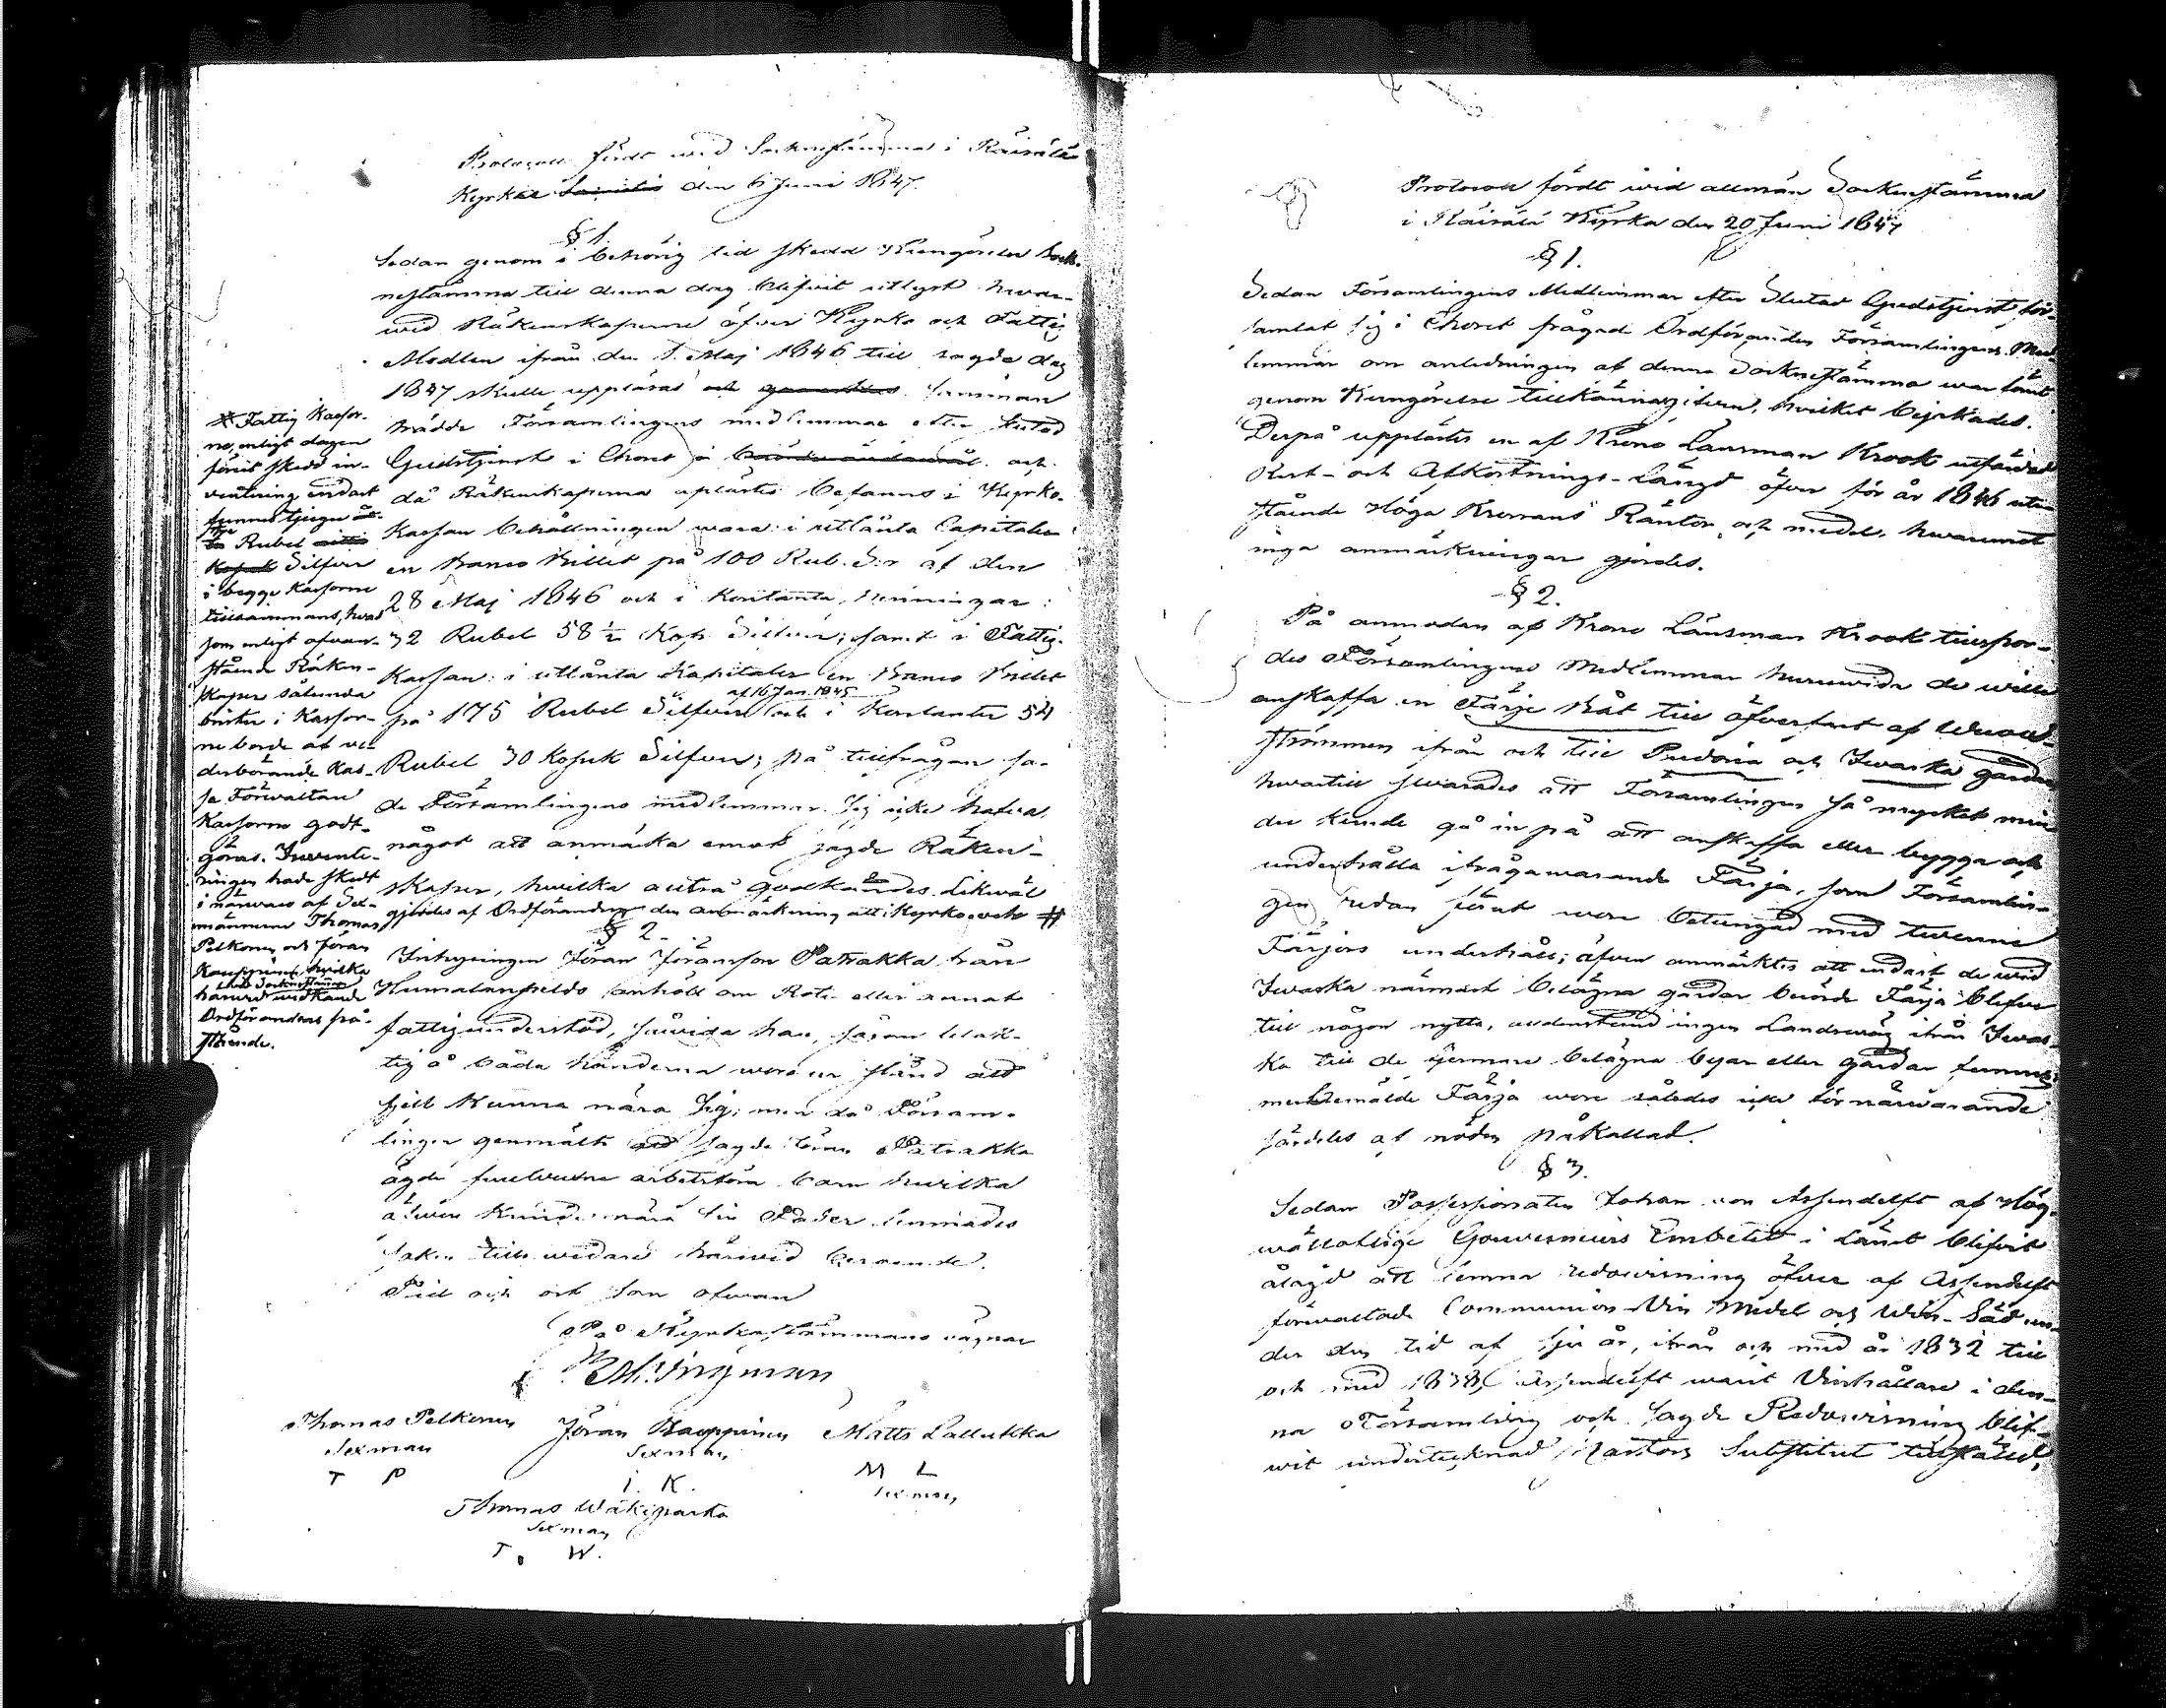 Protocoll fördt wid Socknestämma i Räisälä
Kyrka den 6 Juni 1847.
§ 1.
Sedan genom i behörig tid skedd Kungörelse Sock-
nestämma till denna dag blifvit utlyst hvar-
wid Räkenskaperne öfver Kyrko och Fattig
Medlen ifrån den 1. Maj 1846 till sagde dag
1847 skulle uppläsas och samman
trädde Församlingens medlemmar efter slutad
Gudstjenst i Choret och
då Räkenskaperna uplästes befanns i Kyrko-
Kassan behållningen wara i utlånta Capitaler
en Banco Billet på 100 Rub. S:r af den
28 Maj 1846 och i Kontanta penningar:
32 Rubel 58 1/2 Kop. Silfver; samt i Fattig-
Kassan: i utlånta Kapitaler en Banco Billet
af 16 Jan. 1845
på 175 Rubel Silfver och i Kontanter 54
Rubel 30 Kopek Silfver; på tillfrågan sa-
de Församlingens medlemmar sig icke hafva
något att anmärka emot sagde Räken-
skaper, hwilka alltså godkändes. Likwäl
gjordes af Ordföranden den anmärkning att i Kyrko och #
# Fattig Kassor-
ne, enligt dagen
förut skedd in-
ventering endast
funnos tjugu
Rubel
Kopek Silfver
i begge Kassorne
tillsammans, hvad
som enligt ofvan-
stående Räken-
skaper sålunda
brister i Kassor-
ne borde af ve-
derbörande Kas-
sa Förvaltare
Kassorne godt-
göras. Invente-
ringen hade skedt
i närvaro af Sex-
männerne Thomas
Pelkonen och Jöran
Kauppinen hvilka
härwid widkände
Ordförandens på-
stående.
§ 2.
Inhysingen Jöran Jöransson Patrakka från
Humalanselds anhöll om Rote eller annat
fattigunderstöd, såwida han, såsom
tig å båda händerna wore ur stånd att
sjelf kunna nära sig; men då Försam-
lingen genmälte att sagde Jöran Patrakka
ägde fullwuxne arbetsföra barn hwilka
äfwen kunde nära sin Fader lemnades
saken tills widare härwid beroende.
Tid och ort som ofwan
På Kyrkostämmans wägnar
Ingman
Thomas Pelkonen Jöran Kauppinen Matts Lallukka
Sexman Sexman
T P I. K. M L
Sexman
Thomas Wäkiparta
Sexman
T. W.
Protocoll fördt wid allmän Socknestämma
i Räisälä Kyrka den 20 Juni 1847
§ 1.
Sedan Församlingens Medlemmar efter Slutad Gudstjenst för-
samlat sig i Choret frågade Ordföranden Församlingens Med-
lemmar om anledningen af denna Socknestämma war dem
genom Kungörelse tillkännagifven, hvilket bejakades.
Derpå upplästes en af Krono Länsman Krook utfärdad
Rest- och Afkortnings-Längd öfver för år 1846 ute-
stående Höga Kronans Räntor och medel, hwaremot
inga anmärkningar gjordes.
§ 2.
På anmodan af Krono Länsman Krook tillspor-
des Församlingens Medlemmar huruwida de wille
anskaffa en Färje Båt till öfverfart af Wuoxen-
strömmen ifrån och till Pudoria och Iwaska gårdar
hwartill swarades att Församlingen så mycket min-
dre kunde gå in på att anskaffa eller bygga och
underhålla ifrågawarande Färja, som Församlin-
gen redan förut wore betungad med twenne
Färjors underhåll; äfven anmärktes att endast de wid
Iwaska närmast belägna gårdar borde Färja blifva
till någon nytta, alldenstund ingen Landswäg ifrån Iwas-
ka till de fjermare belägna byar eller gårdar funnes:
merbemälde Färja wore således icke för närwarande
särdeles af nöden påkallad.
§ 3.
Sedan Possessionaten Johan von Assendelft af Hög-
wällotlige Gouverneurs Embetet i Länet blifvit
ålagd att lemna redowisning öfver af Assendelft
förwaltade Communion Vin Medel och Win-Säd un-
der den tid af sju år, ifrån och med år 1832 till
och med 1838, Assendelft warit Vinhållare i den-
na Församling och sagde Redowisning blif-
wit undertecknad Pastors Substitut tillställd,